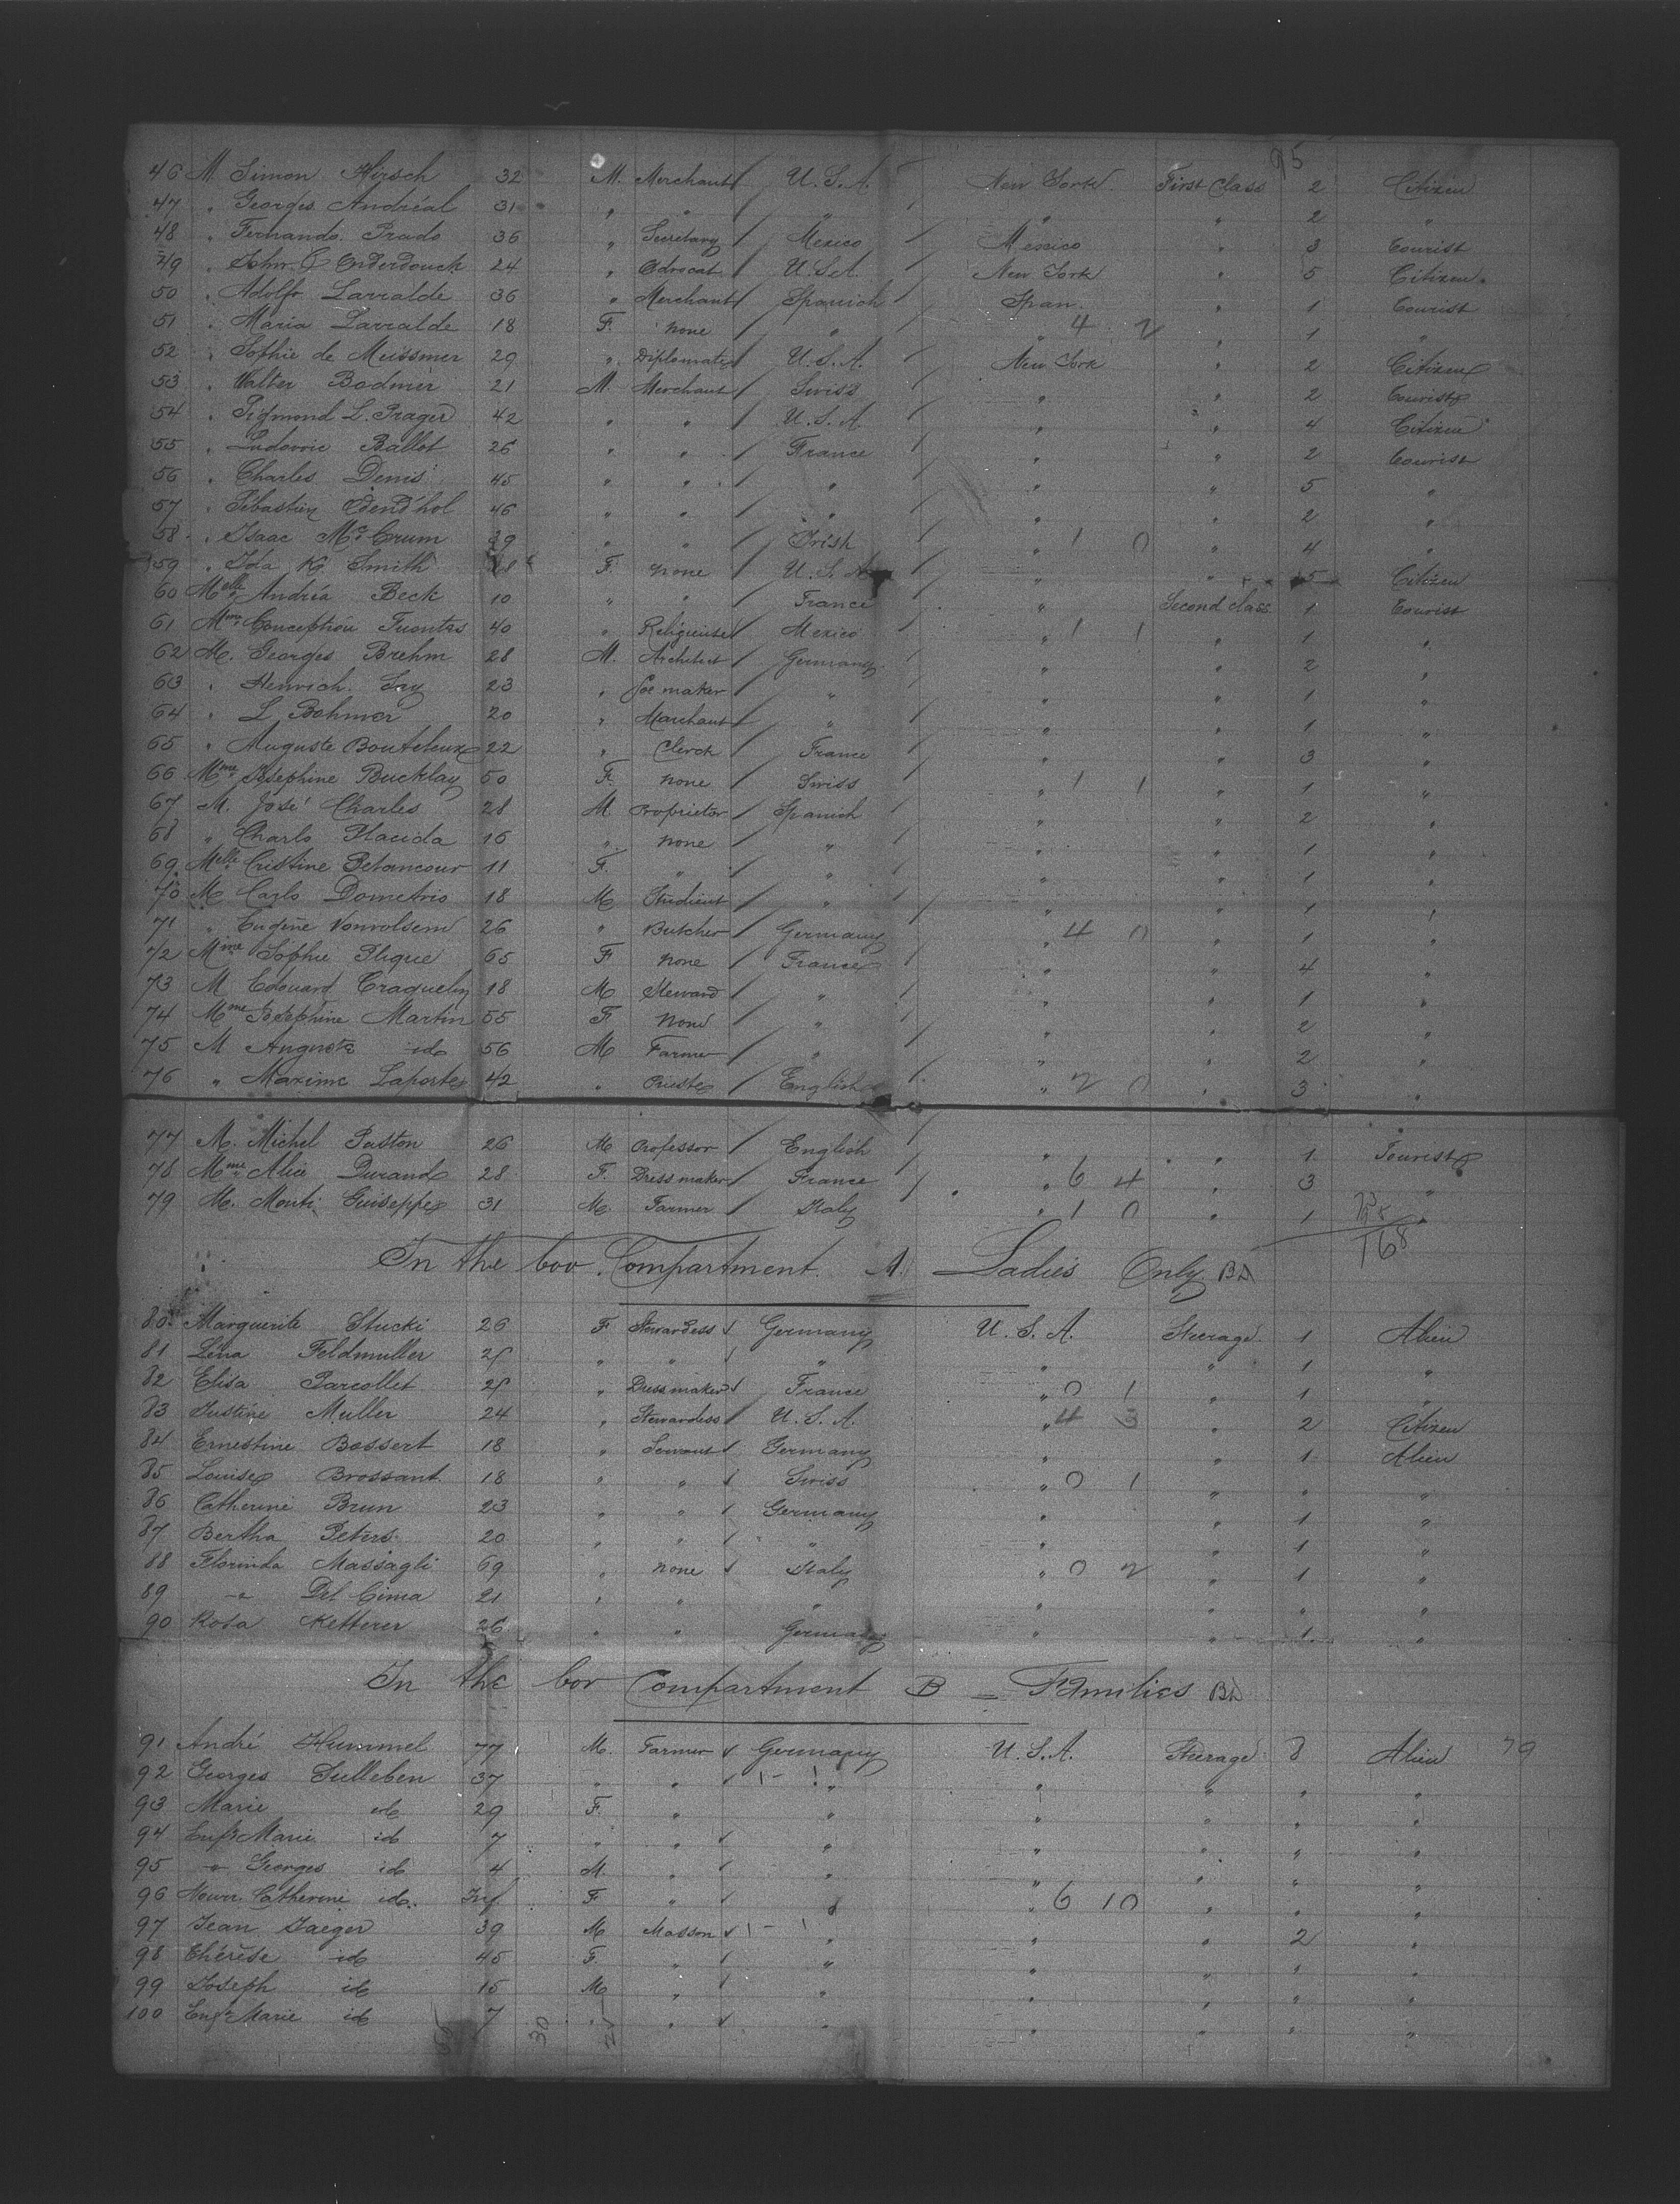 95
46 M. Simon Hirsch 32 M. Merchant U.S.A. New York. First Class 2 Citizen
47 " Georges Andréal 31 " " " " " 2 "
48 " Fernando Prado 36 " Secretary Mexico Mexico " 3 Tourist
49 " John Onderdouck 24 " Advocat U.S.A. New York " 5 Citizen
50 " Adolfo Larralde 36 " Merchant Spanich Span. " 1 Tourist
51 " Maria Larralde 18 F. none " " 4 2 " 1 "
52 " Sophie de Meissmer 29 " Diplomate U.S.A. New York " 2 Citizen
53 " Walter Bodmer 21 M. Merchant Swiss " " 2 Tourist
54 " Sigmond L. Prager 42 " " U.S.A. " " 4 Citizen
55 " Ludovic Ballot 26 " " France " " 2 Tourist
56 " Charles Denis 45 " " " " " 5 "
57 " Sébastien Edend'hol 46 " " " " " 2 "
58 " Isaac Mc Crum 39 " " Irish " 1 0 " 4 "
59 " Ida K. Smith F. none U.S.A. " " 5 Citizen
60 Melle Andréa Beck 10 " " France " Second class 1 Tourist
61 Mme Conception Fuentes 40 " Religieuse Mexico " 1 1 " 1 "
62 M. Georges Brehm 28 M. Architect Germany " " 2 "
63 " Henrich 23 " Soe maker " " " 1 "
64 " L. Bohmer 20 " Marchant " " " 1 "
65 " Auguste Bouteleux 22 " Clerck France " " 3 "
66 Mme Josephine Bucklay 50 F. none Swiss " 1 1 " 1 "
67 M. José Charles 28 M. Proprietor Spanish " " 2 "
68 " Charls Placida 16 " none " " " 1 "
69 Melle Cristine Betancour 11 F. " " " " 1 "
70 M Carlo Dometrio 18 M Studient " " " 1 "
71 " Eugène Vonvolsem 26 " Butcher Germany " 4 0 " 1 "
72 Mme Sophie Plique 65 F none France " " 4 "
73 M Edouard Craquelin 18 M Steward " " " 1 "
74 Mme Joséphine Martin 55 F none " " " 2 "
75 M Auguste id 56 M Farmer " " " 2 "
76 " Maxime Laporte 42 " Prieste English " 2 0 " 3 "
77 M. Michel Paston 26 M Professor English " " 1 Tourist
78 Mme Alice Durand 28 F. Dress maker France " 6 4 " 3 "
79 M. Monti Guiseppe 31 M Farmer Italy " 1 0 " 1 "
168
In the bow Compartment A. Ladies Only BD
80 Marguerite Stucki 26 F Stewardess Germany U.S.A. Steerage 1 Alien
81 Léna Feldmuller " " " " " 1 "
82 Elisa Parcollet " Dress maker France " 0 1 " 1 "
83 Justine Muller 24 " Stewardess U.S.A. " 4 3 " 2 Citizen
84 Ernestine Bossert 18 " Servant Germany " " 1 Alien
85 Louise Brossant 18 " " Swiss " 0 1 " " "
86 Catherine Brun 23 " " Germany " " 1 "
87 Bertha Peters 20 " " " " " 1 "
88 Florinda Massagli 69 " none Italy " 0 2 " 1 "
89 " Del Cima 21 " " " " " " "
90 Rosa Ketterer 26 " " Germany " " 1 "
In the bow Compartment B — Families BD
91 André Hummel 77 M. Farmer Germany U.S.A. Steerage 8 Alien 79
92 Georges Sulleben 37 " " " " " " "
93 Marie id 29 F. " " " " " "
94 Marie id 7 " " " " " " "
95 " Georges id 4 M. " " " " " "
96 Nourr. Catherine id. Inf F " " " 6 10 " " "
97 Jean Jaeger 39 M Masson " " " 2 "
98 Thérèse id 45 F " " " " " "
99 Joseph id 15 M " " " " " "
100 Marie id 7 " " " " " " "
30